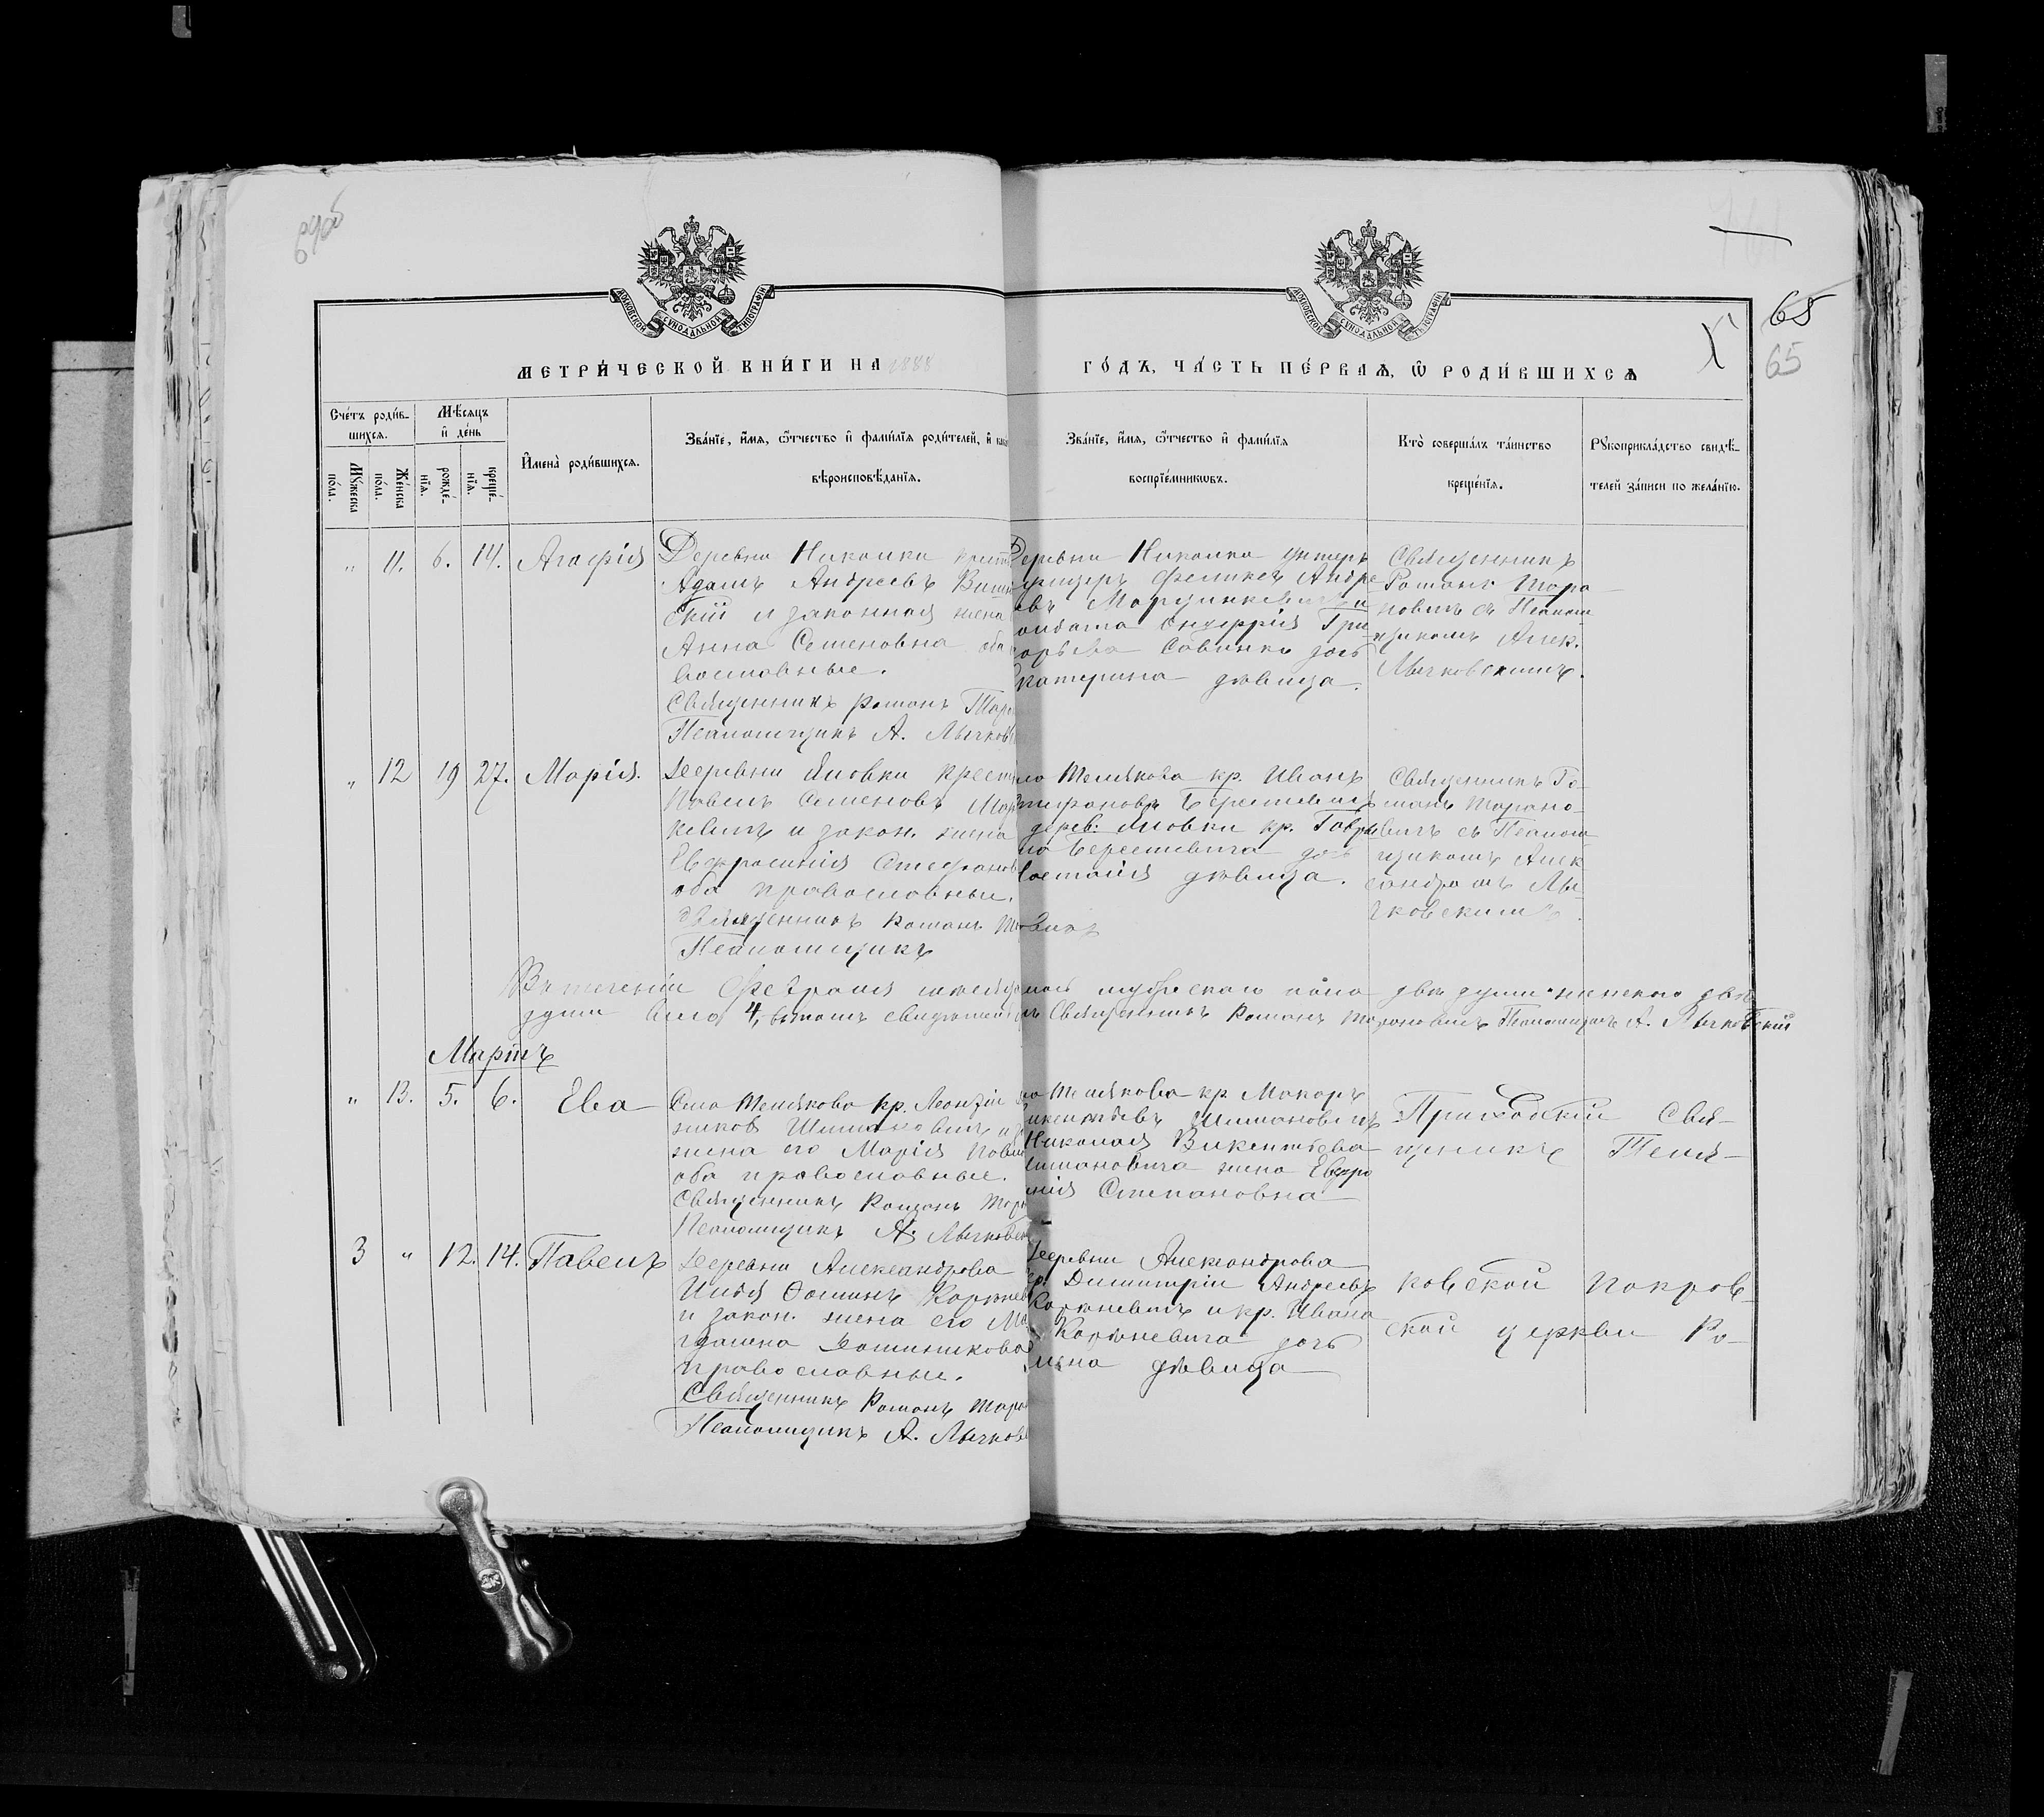 МОСКОВСКОЙ СΥНОДАЛЬНОЙ ТИПОГРАФІИ
МОСКОВСКОЙ СΥНОДАЛЬНОЙ ТИПОГРАФІИ
65
65
МЕТРИ́ЧЕСКОЙ КНИ́ГИ НА 1888 ГО́ДЪ, ЧА́СТЬ ПЕ́РВАѦ, Ѽ РОДИ́ВШИХСѦ
Сче́тъ роди́в-
шихсѧ.
Мꙋжеска по́ла.
Же́нска по́ла.
Мѣ́сѧцъ
и҆ де́нь
рожде́-
нїѧ.
креще́-
нїѧ.
И҆мена̀ роди́вшихсѧ.
Зва́нїе, и҆́мѧ, ѻ҆́тчество и҆ фами́лїѧ роди́телей, и҆ како
вѣроисповѣ́данїѧ.
Зва́нїе, и҆́мѧ, ѻ҆́тчество и҆ фами́лїѧ
воспрїе́мникѡвъ.
Кто̀ соверша́лъ та́инство
креще́нїѧ.
Рꙋкоприкла́дство свидѣ́-
телей за́писи по жела́нїю.
" 11. 6. 14. Агафія
Деревни Николки крест
Адамъ Андреевъ
скій и законная жена
Анна Семеновна оба
вославные.
Священникъ Романъ Тара
Псаломщикъ А. Лычков
Деревни Николки унтеръ
офицеръ Феликсъ Андре
евъ Марцинкевичъ и
Онуфрія Гри
горьева Савинки дочь
катерина дѣвица.
Священникъ
Романъ Тара-
новичъ съ Псалом-
щикомъ Алек.
Лычковскимъ.
" 12 19 27. Марія.
Деревни Яновки крест
Павелъ Семеновъ Мар
кевичъ и закон. жена
Евфросинія Стефанов
оба православные.
Священникъ Романъ
Псаломщикъ
ло Телякова кр. Иванъ
дерев: Яновки кр. Гаври
ла дочь
дѣвица.
Священникъ Ро-
манъ Тарано-
вичъ съ Псалом-
щикомъ Алек
сандромъ Лы-
чковскимъ.
Въ теченіи Февраля мѣсяца мужескаго пола двѣ души женскаго двѣ
души всего 4, въ томъ свидѣтел Священникъ Романъ Тарановичъ Псаломщикъ А. Лычковскій
Мартъ
" 13. 5. 6. Ева
Села Телякова кр. Леонтій
Шимановичъ и з
жена его Марія Павло
оба православные.
Священникъ Романъ Тара
Псаломщикъ А. Лычковск
ла Телякова кр Макаръ
икентьевъ Шимановичъ
Николая Викентьева
имановича жена Евфро
инія Степановна
Приходскій Свя-
щникъ Теля-
3 " 12. 14. Павелъ
Деревни Александрова
Илья Ѳоминъ Корженев
и закон. жена его Ма
гдалина Доминикова
православные.
Священникъ Романъ Тара
Псаломщикъ А. Лычков
Деревни Александрова
кр Димитрій Андреевъ
Корженевичъ и кр. Ивана
Корженевича дочь
дѣвица
ковской Покров-
ской церкви Ро-